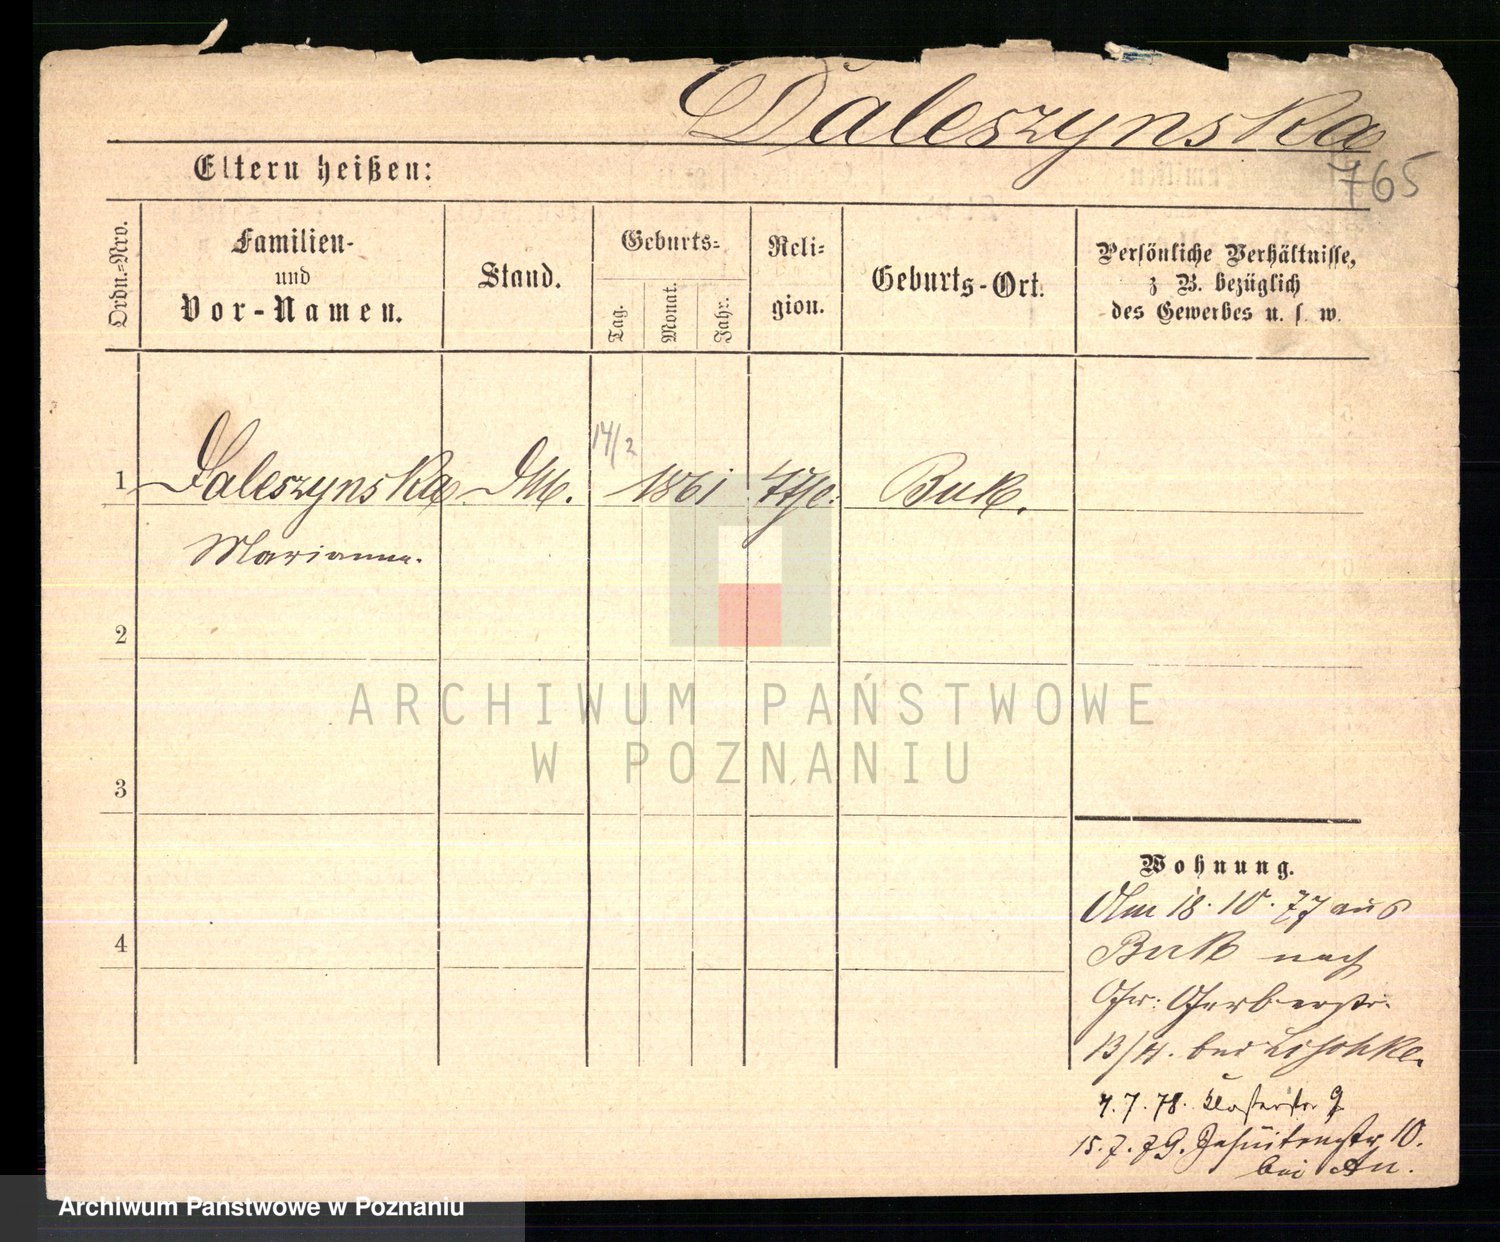 Daleszynska
765
Eltern heißen:
Ordn.-Nro.
Familien-
und
Vor-Namen.
Stand.
Geburts-
Tag.
Monat.
Jahr.
Reli-
gion.
Geburts-Ort.
Persönliche Verhältnisse,
z B. bezüglich
des Gewerbes u. s. w.
1
Daleszynska
DM.
14/2
1861
kth.
Buk.
Marianna.
2
3
4
Wohnung.
Am 18.10.77 aus
Buk nach
Gr: Gerberstr.
13/4. bei
4.7.78. Klosterstr. 9
15.7.79. Jesuitenstr 10.
bei
ARCHIWUM PAŃSTWOWE
W POZNANIU
Archiwum Państwowe w Poznaniu